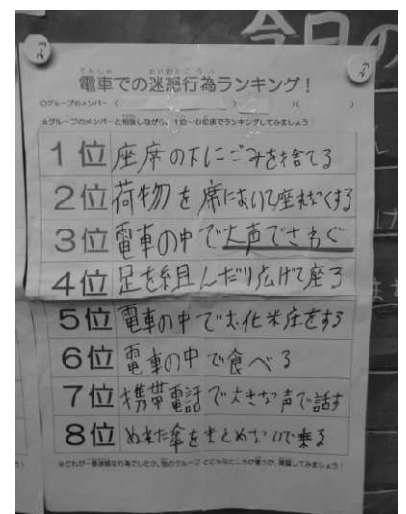 今日の
電車での迷惑行為ランキング!
〇グループのメンバー ( )( )
★グループのメンバーと相談しながら、1位~8位までランキングしてみましょう!
1位 座席の下にごみを捨てる
2位 荷物を席において座れなくする
3位 電車の中で大声でさわぐ
4位 足を組んだり広げて座る
5位 電車の中でお化粧をする
6位 電車の中で食べる
7位 携帯電話で大きな声で話す
8位 ぬれた傘をまとめないで乗る
★どれが一番迷惑な行為でしたか。他のグループとどんなところが違うか、確認してみましょう!